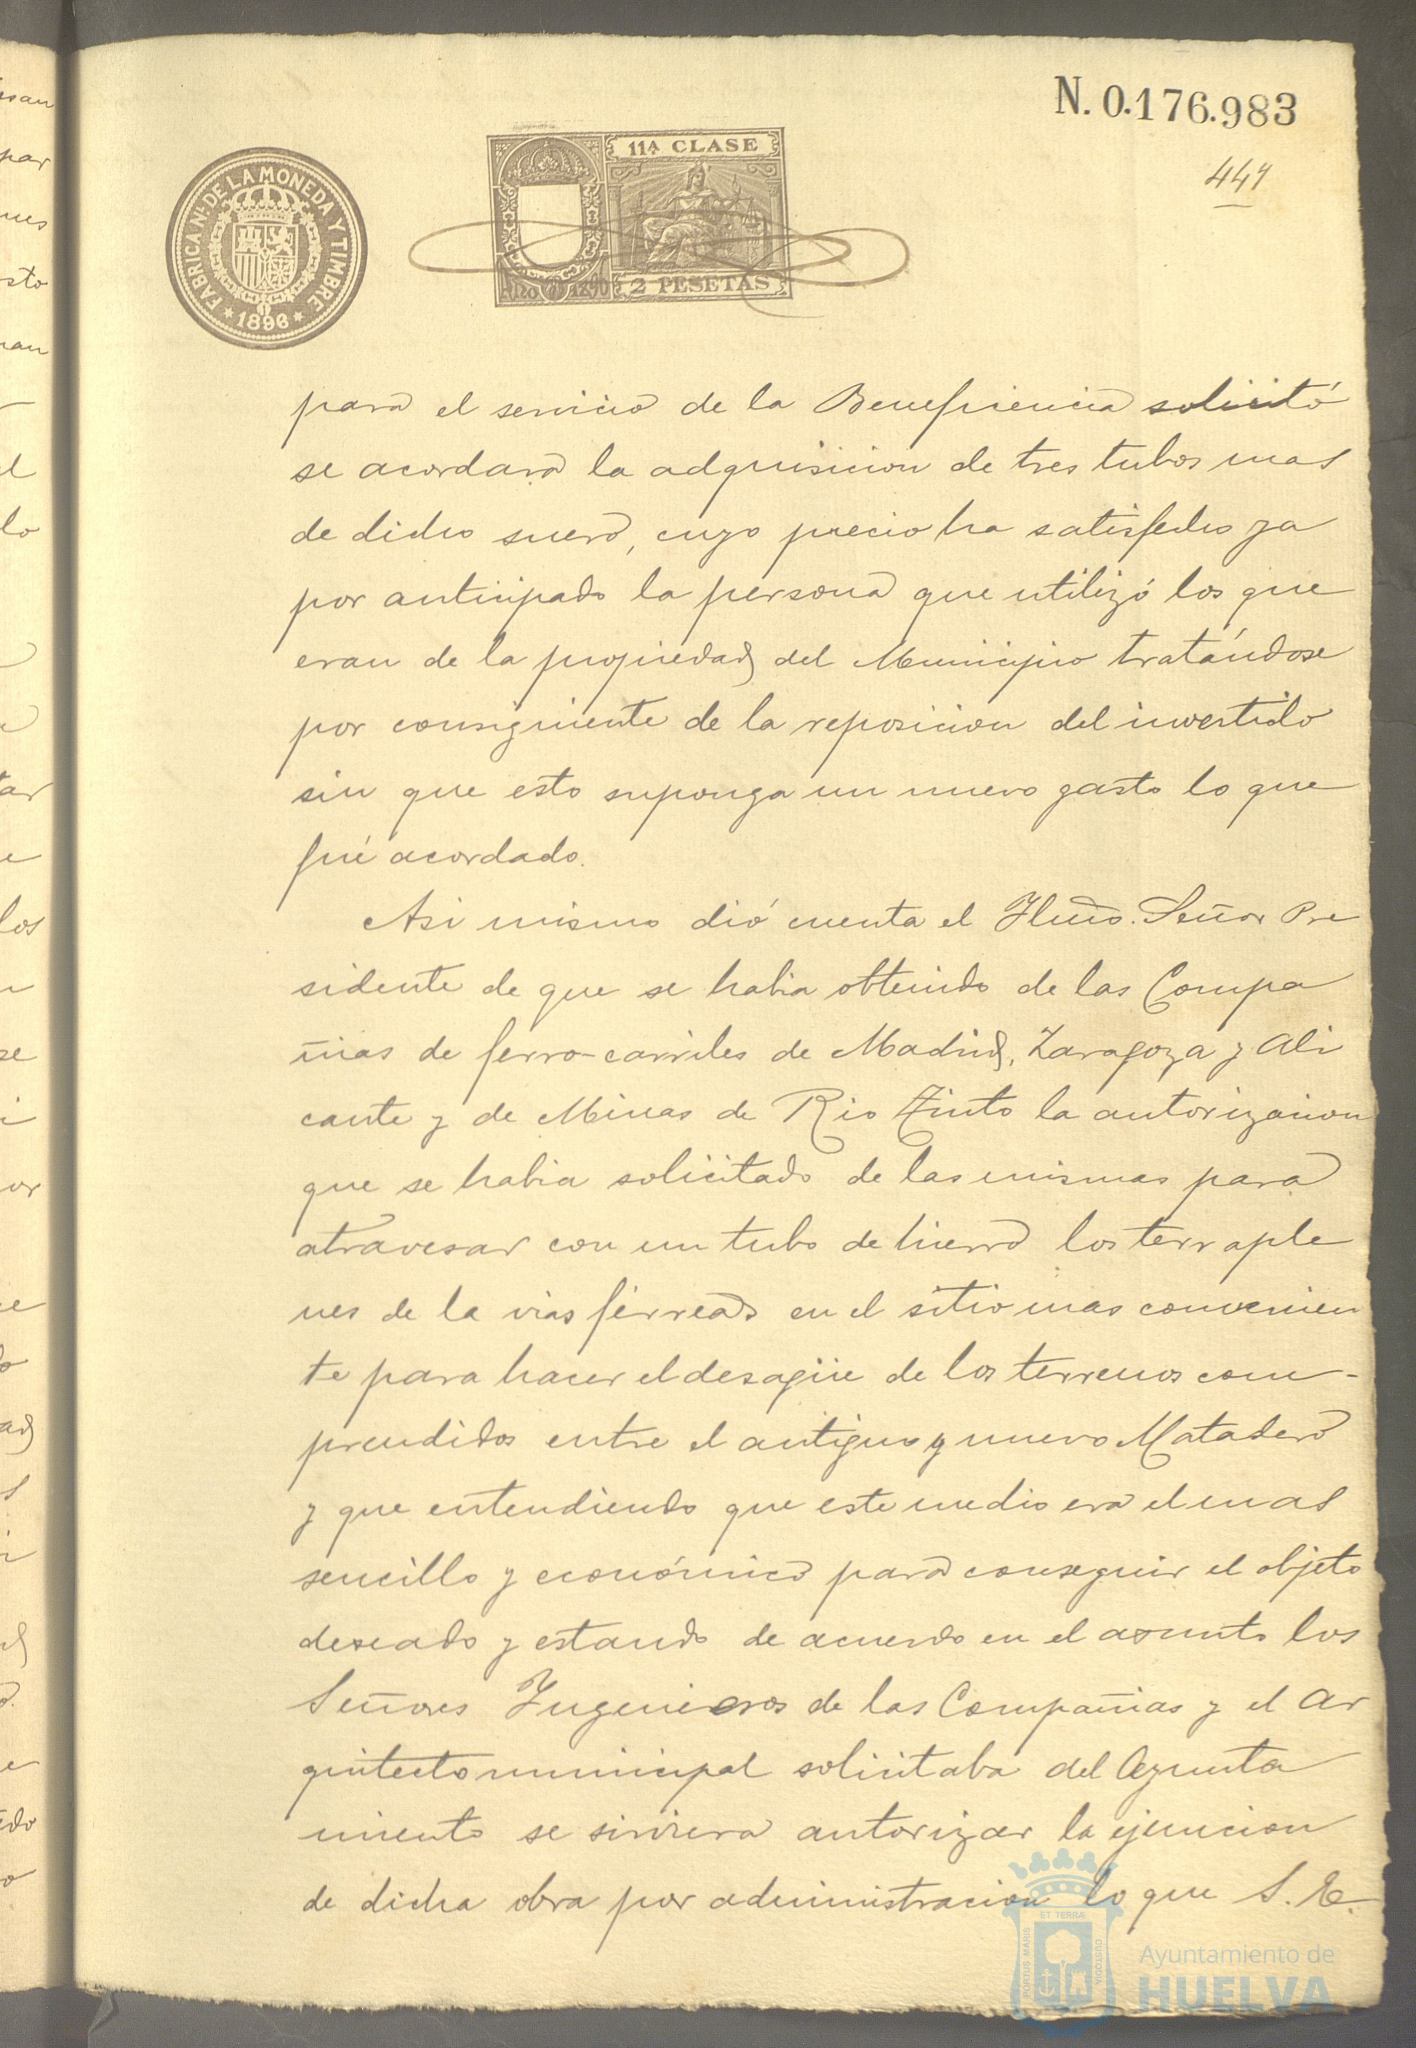 N. 0.176.983
441
FABRICA NL. DE LA MONEDA Y TIMBRE
1896
11ª CLASE
2 PESETAS
para el servicio de la Beneficencia solicitó
se acordara la adquisicion de tres tubos mas
de dicho suero, cuyo precio ha satisfecho ya
por anticipado la persona que utilizó los que
eran de la propiedad del Municipio tratándose
por consiguiente de la reposicion del invertido
sin que esto suponga un nuevo gasto lo que
fué acordado.
Asi mismo dió cuenta el Iltmo. Señor Pre
sidente de que se habia obtenido de las Compa
ñias de ferro-carriles de Madrid, Zaragoza y Ali
cante y de Minas de Rio Tinto la autorizacion
que se habia solicitado de las mismas para
atravesar con un tubo de hierro los terraple
nes de la vias férreas en el sitio mas convenien
te para hacer el desagüe de los terrenos com-
prendidos entre el antiguo y nuevo Matadero
y que entendiendo que este medio era el mas
sencillo y económico para conseguir el objeto
deseado y estando de acuerdo en el asunto los
Señores Ingenieros de las Compañias y el Ar
quitecto municipal solicitaba del Ayunta
miento se sirviera autorizar la ejecucion
de dicha obra por administracion lo que S. E.
ET TERRÆ
PORTUS MARIS
CUSTODIA
Ayuntamiento de
HUELVA